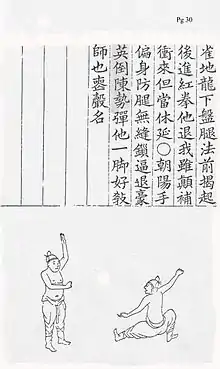 Pg 30
雀地龍下盤腿法前揭起
後進紅拳他退我雖顛補
衝來但當休延○朝陽手
偏身防腿無縫鎖逼退豪
英倒陳勢彈他一脚好敎
師也喪聲名